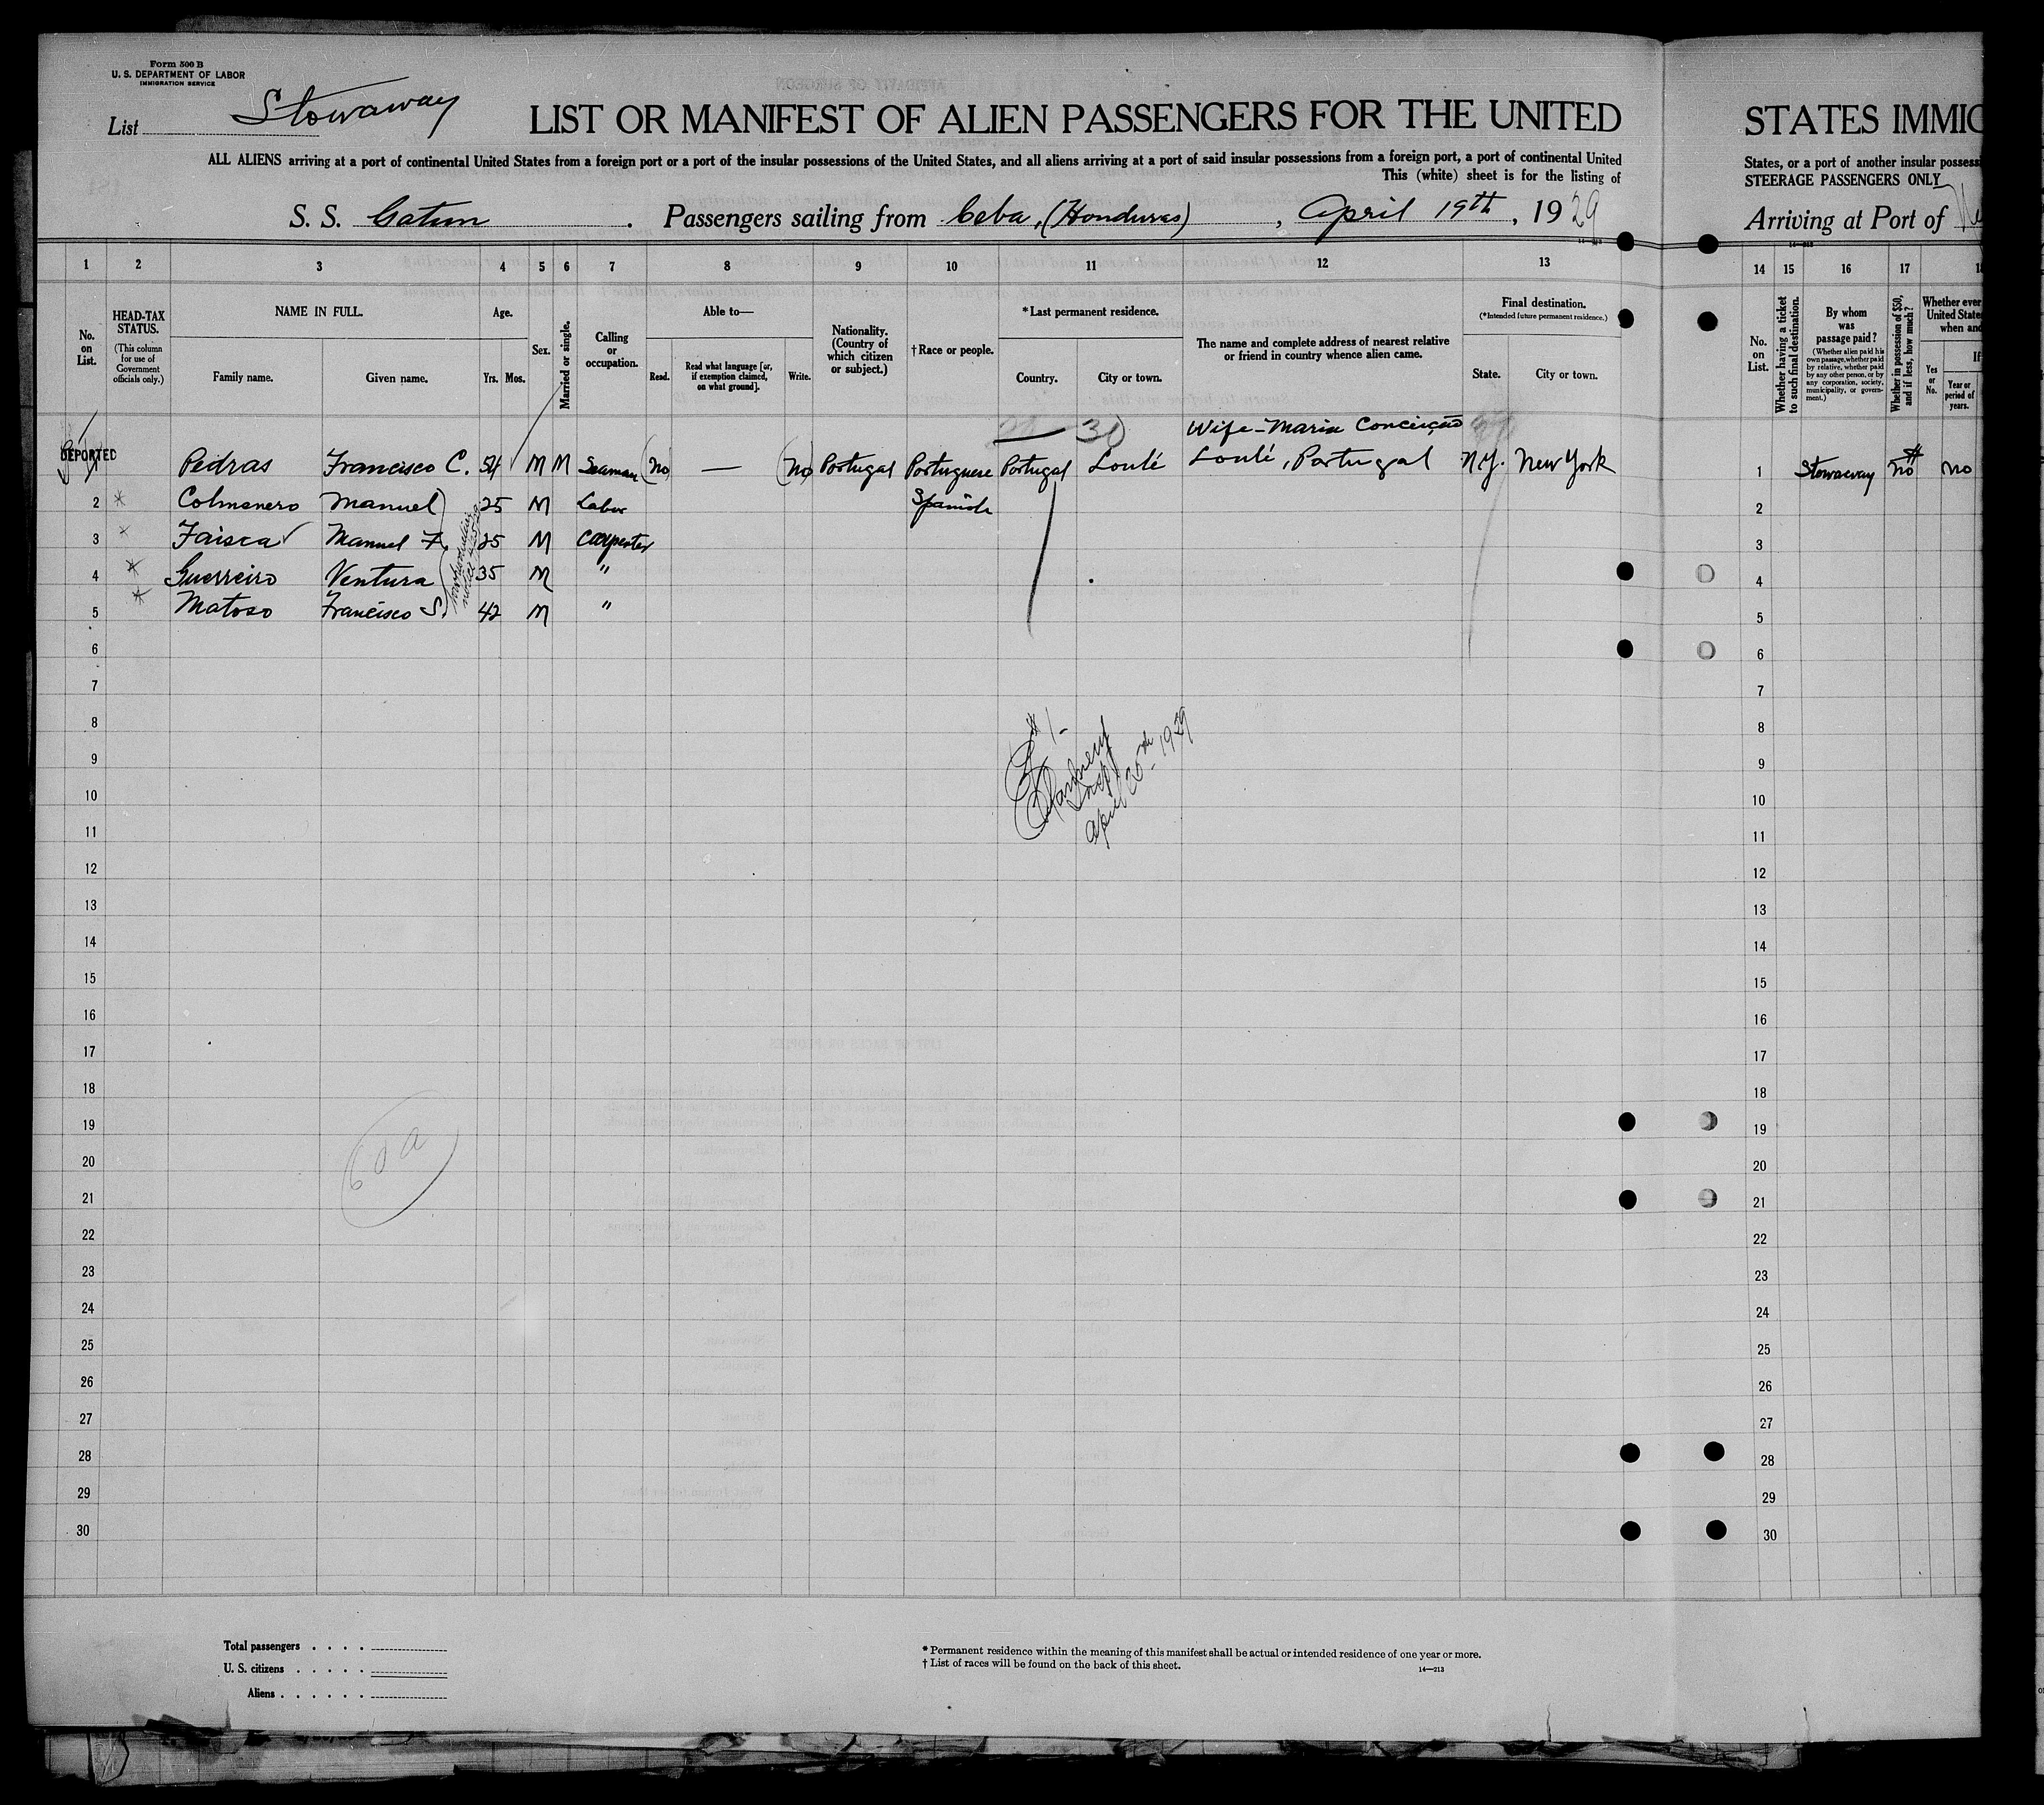 Form 500 B
U. S. DEPARTMENT OF LABOR
IMMIGRATION SERVICE
List Stowaway
LIST OR MANIFEST OF ALIEN PASSENGERS FOR THE UNITED
ALL ALIENS arriving at a port of continental United States from a foreign port or a port of the insular possessions of the United States, and all aliens arriving at a port of said insular possessions from a foreign port, a port of continental United
This (white) sheet is for the listing of
S. S. Gatun . Passengers sailing from Ceba, (Honduras) , April 19th , 1929
STATES IMMIG
States, or a port of another insular possess
STEERAGE PASSENGERS ONLY
Arriving at Port of
14—213
14—213
1 2 3 4 5 6 7 8 9 10 11 12 13
14 15 16 17 18
No. on List.
HEAD-TAX STATUS.
(This column for use of Government officials only.)
NAME IN FULL.
Family name.
Given name.
Age.
Yrs. Mos.
Sex.
Married or single.
Calling or occupation.
Able to—
Read.
Read what language [or, if exemption claimed, on what ground].
Write.
Nationality. (Country of which citizen or subject.)
† Race or people.
* Last permanent residence.
Country.
City or town.
The name and complete address of nearest relative or friend in country whence alien came.
Final destination.
(* Intended future permanent residence.)
State.
City or town.
No. on List.
Whether having a ticket to such final destination.
By whom was passage paid?
(Whether alien paid his own passage, whether paid by relative, whether paid by any other person, or by any corporation, society, municipality, or government.)
Whether in possession of $50, and if less, how much?
Whether ever
United State
when and
Yes or No.
If
Year or period of years.
30
Wife - Maria Conceição
DEPORTED Pedras Francisco C. 54 M M Seaman (No) — (No) Portugal Portuguese Portugal Loulé Loulé, Portugal N.Y. New York
1 Stowaway no no
2 * Colmenero Manuel 25 M Labor Spanish
3 * Faisca Manuel F. 25 M Carpenter
4 * Guerreiro Ventura 35 M "
5 * Matoso Francisco S. 42 M "
6
7
8
9
10
11
12
13
14
15
16
17
18
19
20
21
22
23
24
25
26
27
28
29
30
2
3
4
5
6
7
8
9
10
11
12
13
14
15
16
17
18
19
20
21
22
23
24
25
26
27
28
29
30
# 1-
Insp
April 25th 1929
60a
Total passengers . . . .
U. S. citizens . . . . .
Aliens . . . . . .
* Permanent residence within the meaning of this manifest shall be actual or intended residence of one year or more.
† List of races will be found on the back of this sheet.
14—213